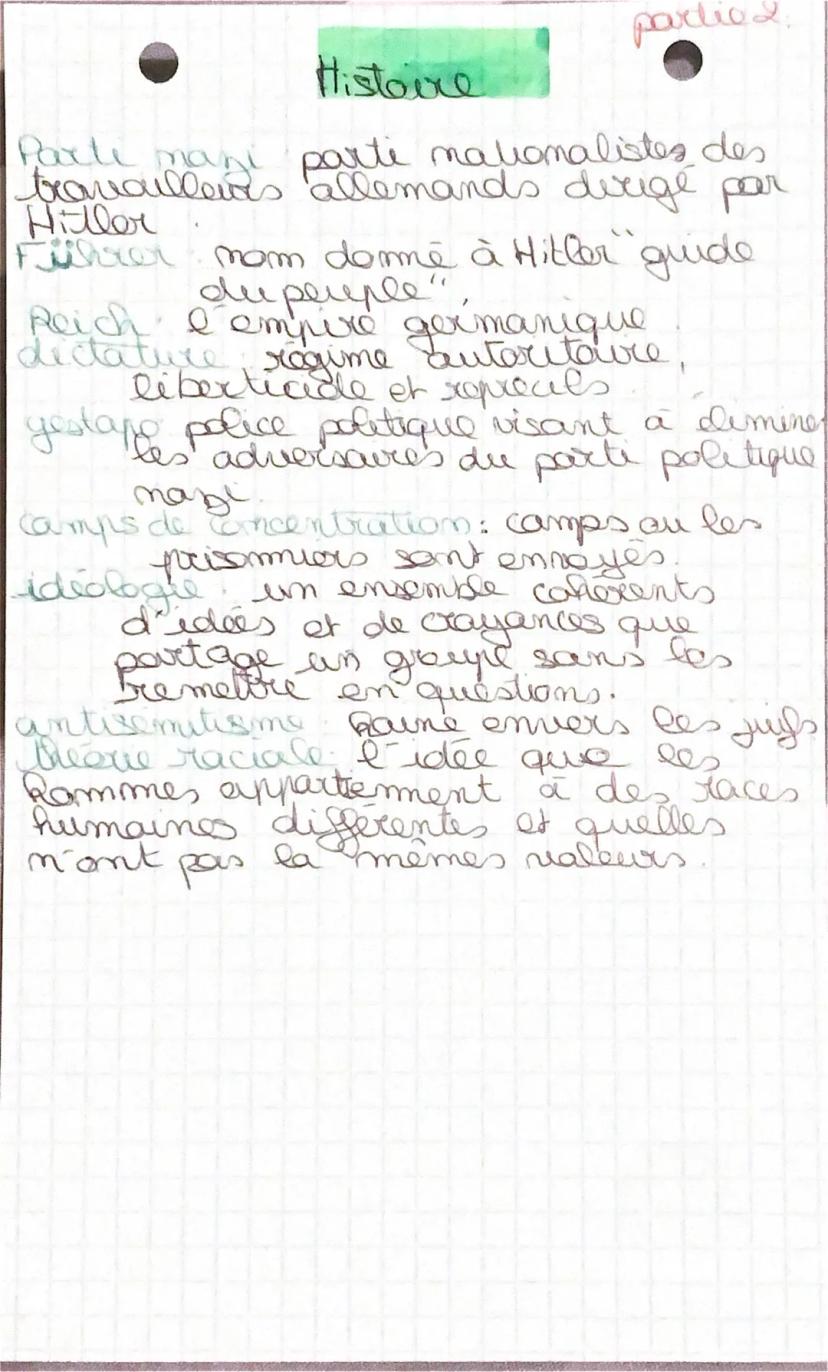 partie 2.
Histoire
Parti nazi : parti nationalistes des
travailleurs allemands dirigé par
Hitler.
Führer : nom donné à Hitler "guide
du peuple".
Reich : l'empire germanique.
dictature : régime autoritaire,
liberticide et
gestapo police politique visant à éliminer
les adversaires du parti politique
nazi.
camps de concentration : camps ou les
prisonniers sont envoyés.
idéologie : un ensemble cohérents
d'idées et de croyances que
partage un groupe sans les
remettre en questions.
antisémitisme : haine envers les juifs
théorie raciale : l'idée que les
hommes appartiennent à des races
humaines différentes et quelles
n'ont pas la mêmes valeurs.